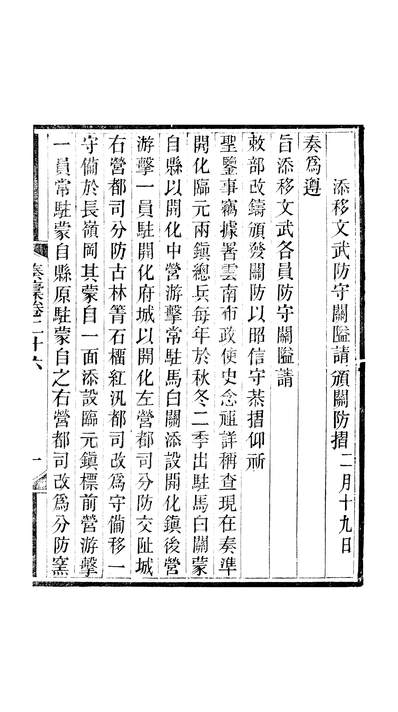 添移文武防守關隘請頒關防摺 二月十九日
奏爲遵
旨添移文武各員防守關隘請
敕部改鑄頒發關防以昭信守恭摺仰祈
聖鑒事竊據署雲南布政使史念祖詳稱查現在奏準
開化臨元兩鎭總兵每年於秋冬二季出駐馬白關蒙
自縣以開化中營游擊常駐馬白關添設開化鎭後營
游擊一員駐開化府城以開化左營都司分防交趾城
右營都司分防古林箐石榴紅汛都司改爲守備移一
守備於長嶺岡其蒙自一面添設臨元鎭標前營游擊
一員常駐蒙自縣原駐蒙自之右營都司改爲分防窰
奏稾卷二十六
一